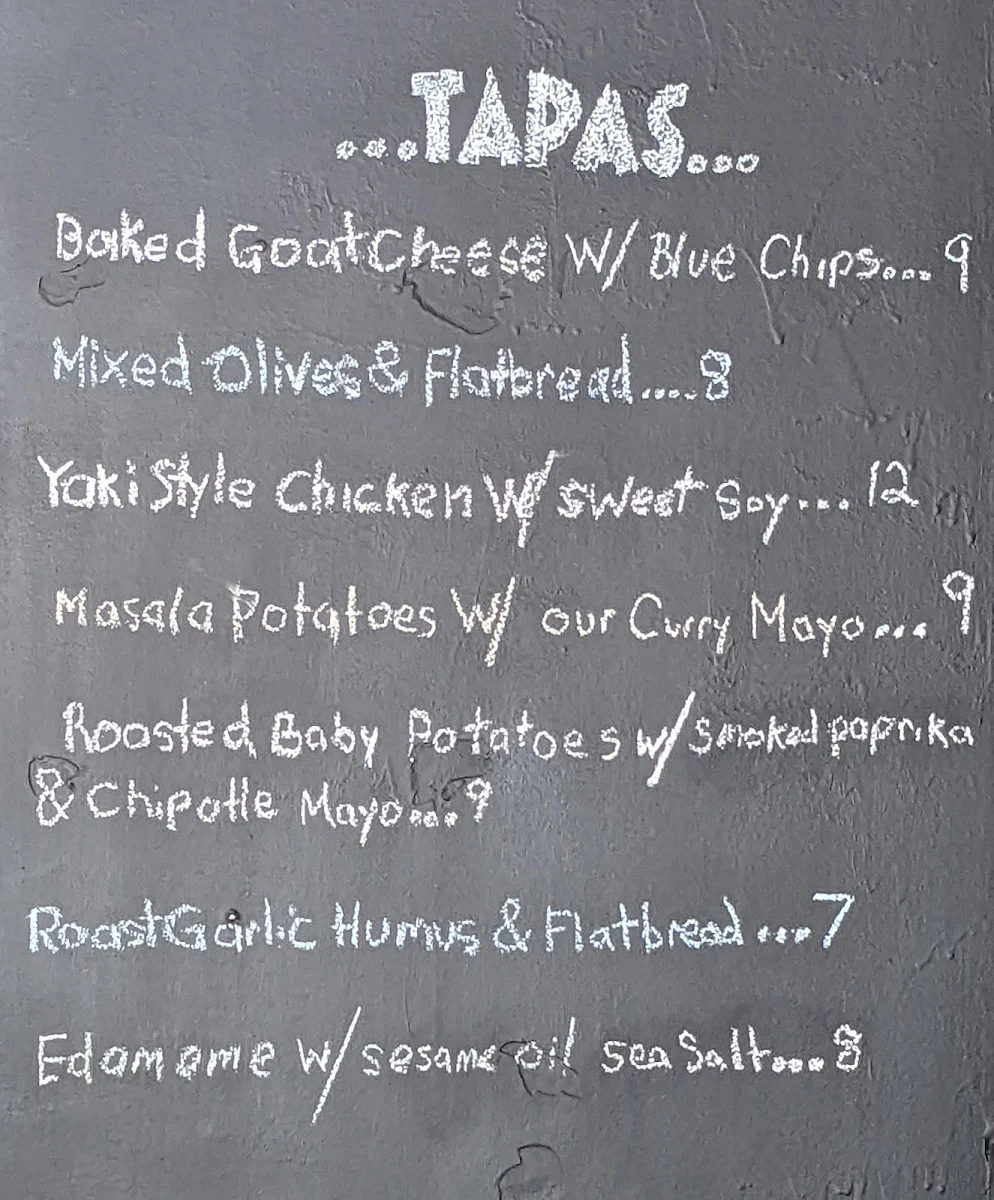 ...TAPAS...
Baked Goat Cheese W/ Blue Chips.... 9
Mixed Olives & Flatbread.....8
Yaki Style Chicken W/ sweet soy.... 12
Masala Potatoes W/ our Curry Mayo... 9
Roasted Baby Potatoes w/ smoked paprika
& Chipotle Mayo....9
Roast Garlic Humus & Flatbread ....7
Edamame w/ sesame oil sea Salt....8